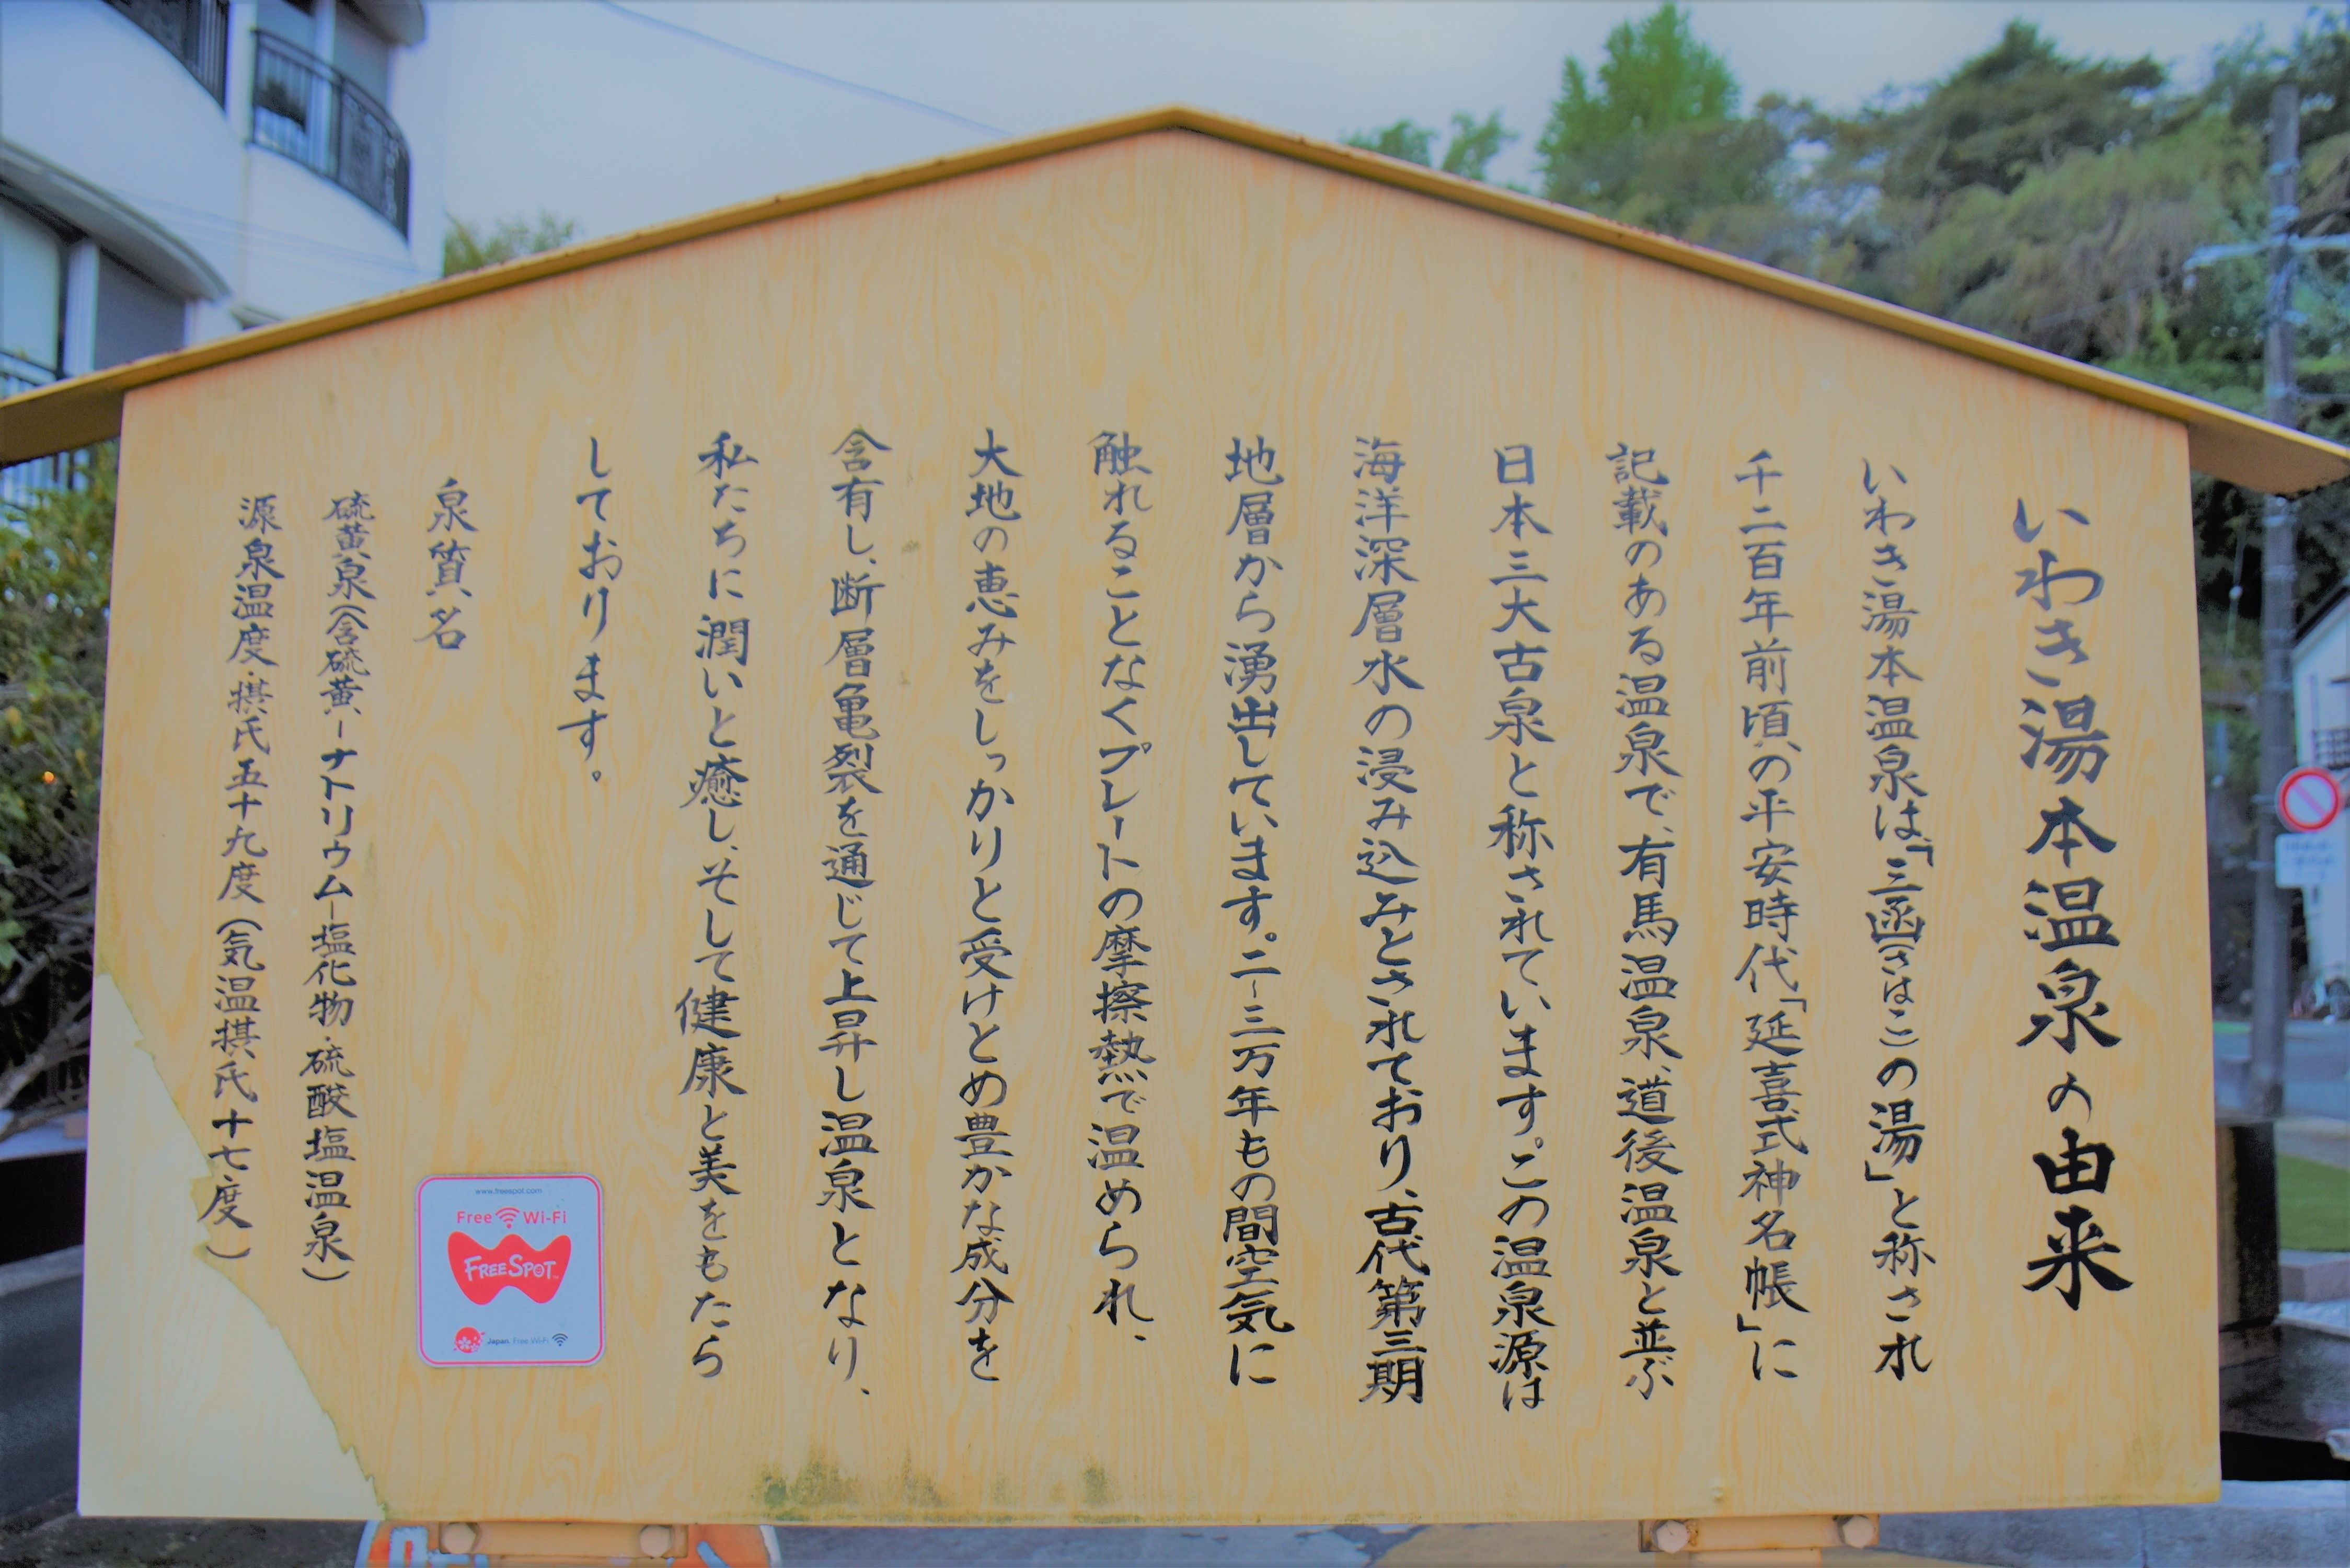 いわき湯本温泉の由来
いわき湯本温泉は、「三函(さはこ)の湯」と称され
千二百年前頃の平安時代「延喜式神名帳」に
記載のある温泉で、有馬温泉、道後温泉と並ぶ
日本三大古泉と称されています。この温泉源は
海洋深層水の浸み込みとされており、古代第三期
地層から湧出しています。二~三万年もの間空気に
触れることなくプレートの摩擦熱で温められ、
大地の恵みをしっかりと受けとめ豊かな成分を
含有し、断層亀裂を通じて上昇し温泉となり、
私たちに潤いと癒し、そして健康と美をもたら
しております。
泉質名
硫黄泉(含硫黄-ナトリウム-塩化物・硫酸塩温泉)
源泉温度・摂氏五十九度(気温摂氏十七度)
www.freespot.com
Free Wi-Fi
FREESPOT
Japan. Free Wi-Fi